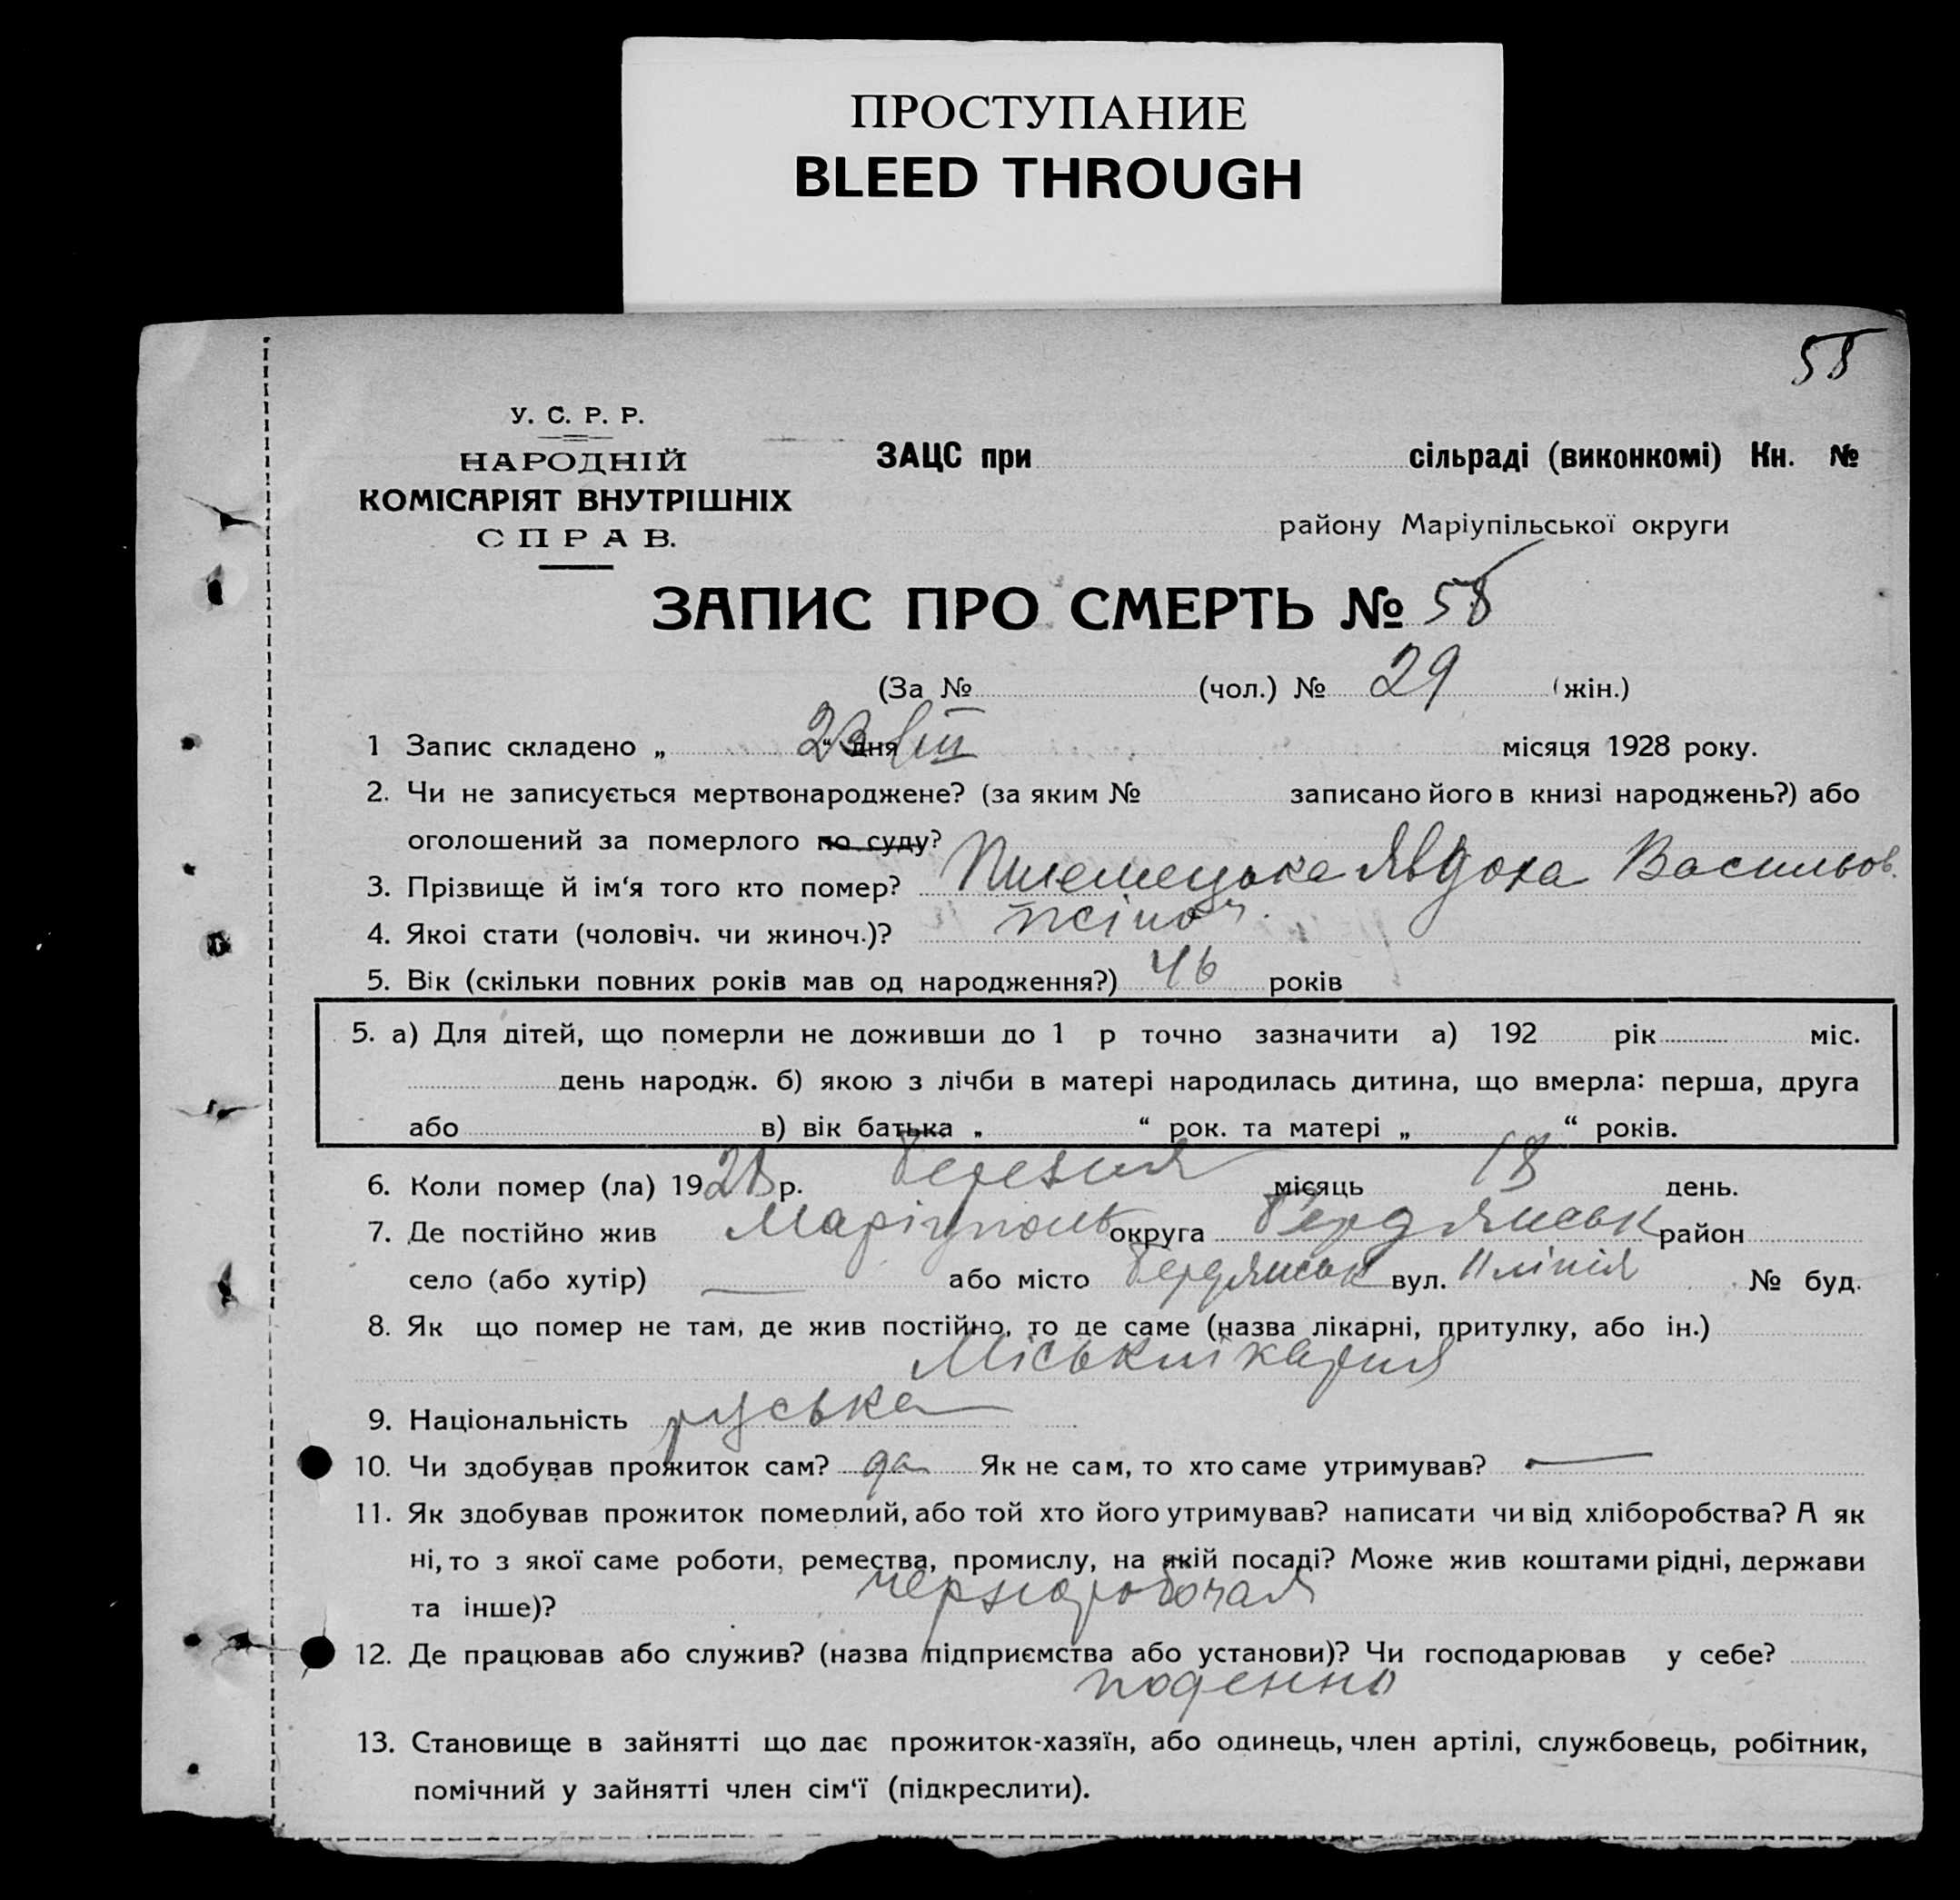 ПРОСТУПАНИЕ
BLEED THROUGH
58
У. С. Р. Р.
НАРОДНІЙ
КОМІСАРІЯТ ВНУТРІШНІХ
СПРАВ.
ЗАЦС при сільраді (виконкомі) Кн. №
району Маріупільської округи
ЗАПИС ПРО СМЕРТЬ № 58
(За № (чол.) № 29 (жін.)
1 Запис складено „ 23 “ дня III місяця 1928 року.
2. Чи не записується мертвонароджене? (за яким № записано його в книзі народжень?) або
оголошений за померлого по суду?
3. Прізвище й ім‘я того кто помер? Явдоха Васильов.
4. Якоі стати (чоловіч. чи жиноч.)? жіноч.
5. Вік (скільки повних років мав од народження?) 46 років
5. а) Для дітей, що померли не доживши до 1 р точно зазначити а) 192 рік міс.
день народж. б) якою з лічби в матері народилась дитина, що вмерла: перша, друга
або в) вік батька „ “ рок. та матері „ “ років.
6. Коли помер (ла) 1928 р. Березня місяць 18 день.
7. Де постійно жив Маріуполь округа Бердянськ район
село (або хутір) — або місто Бердянськ вул. 11 лінія № буд.
8. Як що помер не там, де жив постійно, то де саме (назва лікарні, притулку, або ін.)
9. Національність руська
10. Чи здобував прожиток сам? да Як не сам, то хто саме утримував? —
11. Як здобував прожиток померлий, або той хто його утримував? написати чи від хліборобства? А як
ні, то з якої саме роботи, ремества, промислу, на якій посаді? Може жив коштами рідні, держави
та інше)? чернорабочая
12. Де працював або служив? (назва підприємства або установи)? Чи господарював у себе?
поденно
13. Становище в зайнятті що дає прожиток-хазяїн, або одинець, член артілі, службовець, робітник,
помічний у зайнятті член сім‘ї (підкреслити).